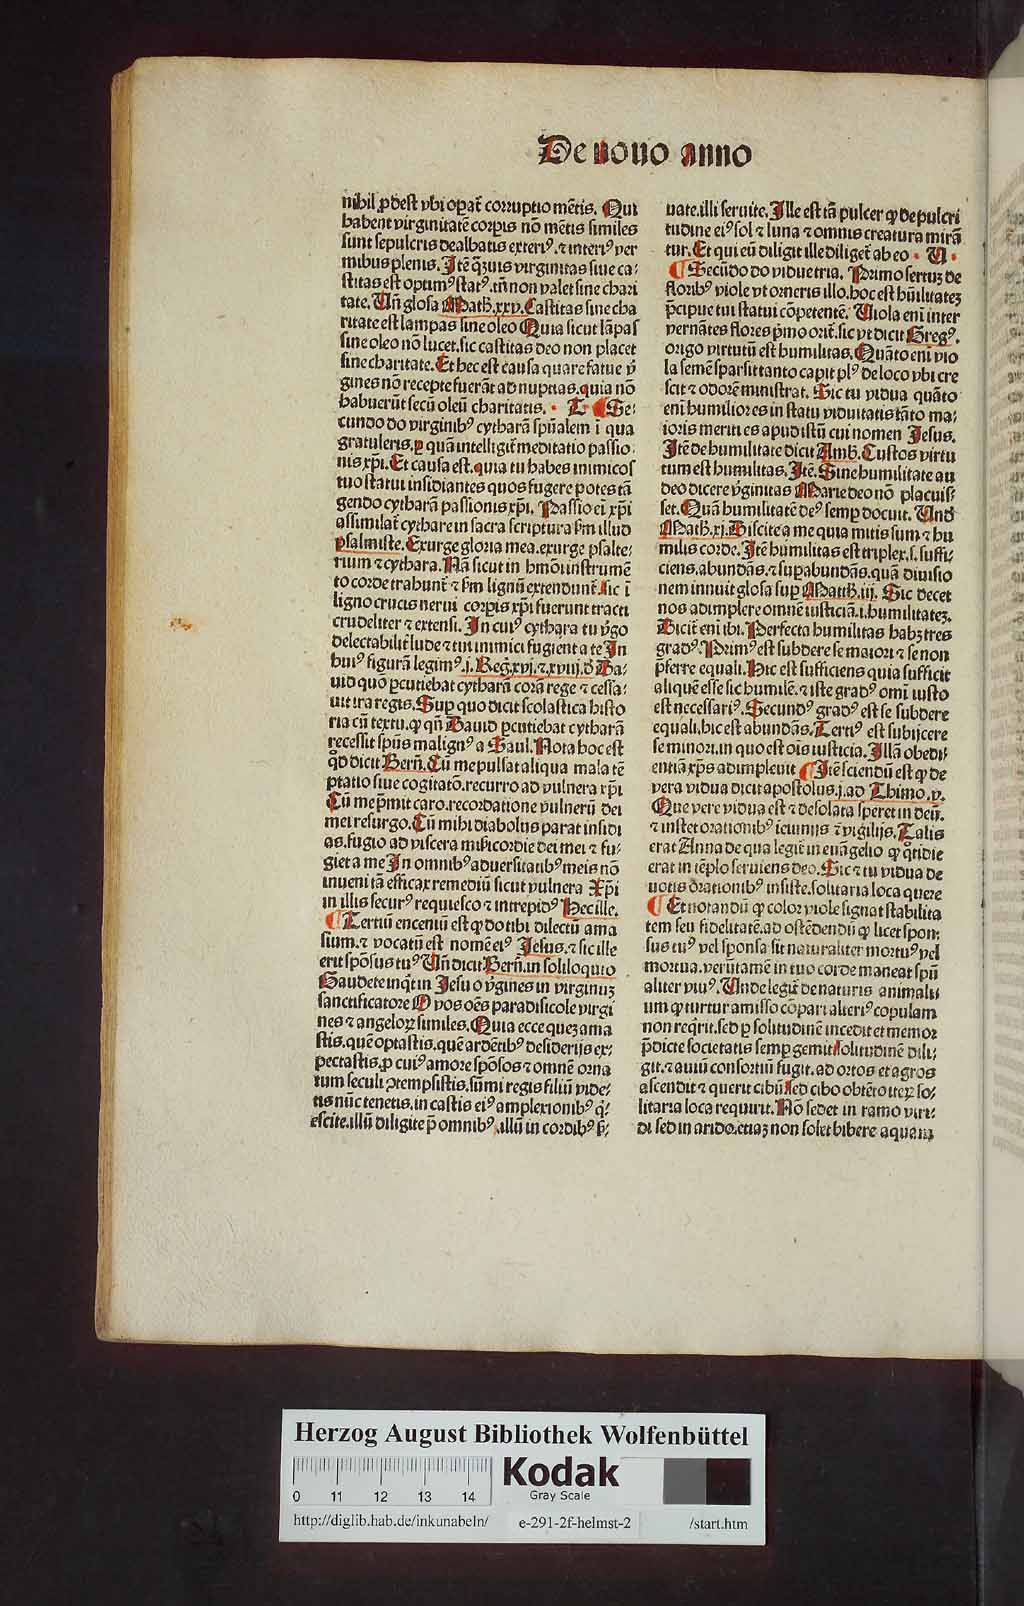 De nouo anno
nihil ꝓdest vbi opat̃ corruptio mẽtis. Qui
habent virginitatẽ corpis nõ mẽtis similes
sunt sepulcris dealbatis exteriꝰ. ⁊ interiꝰ ver
mibus plenis. Itẽ qꝫuis virginitas siue ca⸗
stitas est optimꝰ statꝰ. tñ non valet sine chari
tate. Uñ glosa Math. xxv. Castitas sine cha
ritate est lampas sine oleo Quia sicut lãpas
sine oleo nõ lucet. sic castitas deo non placet
sine charitate. Et hec est causa quare fatue v̾
gines nõ recepte fuerãt ad nuptias. quia nõ
habuerũt secũ oleũ charitatis. · T · ¶ Se⸗
cundo do virginibꝰ cytharã spũalem ĩ qua
gratuleris, ꝑ quã intelligit̃ meditatio passio
nis xp̃i. Et causa est. quia tu habes inimicos
tuo statui insidiantes quos fugere potes tã
gendo cytharã passionis xp̃i. Passio ei xp̃i
assimilat̃ cythare in sacra scriptura ẜm illud
psalmiste. Exurge gloria mea. exurge psalte⸗
rium ⁊ cythara. Nã sicut in hmõi instrumẽ
to corde trahunt̃ ⁊ ẜm lignũ extendunt̃. sic ĩ
ligno crucis nerui corpis xp̃i fuerunt tracti
crudeliter ⁊ extensi. In cuiꝰ cythara tu v̾go
delectabilit̃ lude ⁊ tui inimici fugient a te In
huiꝰ figurã legimꝰ .j. Reg. xvj. ⁊ xviij. ď Da⸗
uid quo ꝑcutiebat cytharã corã rege ⁊ cessa⸗
uit ira regis. Sup quo dicit scolastica histo
ria cũ textu. ꝙ qñ Dauid ꝑcutiebat cytharã
recessit spũs malignꝰ a Saul. Nota hoc est
qď dicit Berñ. Cũ me pulsat aliqua mala tẽ
ptatio siue cogitatõ. recurro ad vulnera xp̃i
Cũ me p̃mit caro. recordatione vulnerũ dei
mei resurgo. Cũ mihi diabolus parat insidi
as. fugio ad viscera mĩcordie dei mei ⁊ fu⸗
giet a me In omnibꝰ aduersitatibꝰ meis nõ
inueni tã efficax remediũ sicut vulnera Xp̃i
in illis securꝰ requiesco ⁊ intrepidꝰ Hec ille.
¶ Tertiũ enceniũ est ꝙ do tibi dilectũ ama
sium. ⁊ vocatũ est nomẽ eiꝰ Jesus. ⁊ sic ille
erit spõsus tuꝰ Uñ dicit Berñ. in soliloquio
Gaudete inq̃t in Jesu o v̾gines in virginuꝫ
sanctificatore O vos oẽs paradisicole virgi
nes ⁊ angeloꝝ similes. Quia ecce queꝫ ama
stis. quẽ optastis. quẽ ardẽtibꝰ desiderijs ex⸗
pectastis. ꝓ cuiꝰ amore spõsos ⁊ omnẽ orna
tum seculi ꝯtempsistis. sũmi regis filiũ vide⸗
tis nũc tenetis. in castis eiꝰ amplexionibꝰ q̾⸗
escite. illũ diligite p̃ omnibꝰ. illũ in cordibꝰ p̃⸗
uate. illi seruite. Ille est tã pulcer ꝙ de pulcri
tudine eiꝰ sol ⁊ luna ⁊ omnis creatura mirã
tur. Et qui eũ diligit ille diliget̃ ab eo · U ·
¶ Secũdo do viduetria. Primo sertuꝫ de
floribꝰ viole vt orneris illo. hoc est hũilitateꝫ
p̃cipue tui statui cõpetentẽ. Uiola eni inter
vernãtes flores p̾mo orit̃. sic vt dicit Gregꝰ.
origo virtutũ est humilitas. Quãto eni vio
la semẽ sparsit tanto capit plꝰ de loco vbi cre
scit ⁊ odorẽ ministrat. Sic tu vidua quãto
eni humiliores in statu viduitatis tãto ma⸗
ioris meriti es apud istũ cui nomen Jesus.
Itẽ de humilitate dicit Amb. Custos virtu
tum est humilitas. Itẽ. Sine humilitate au
deo dicere v̾ginitas Marie deo nõ placuis⸗
set. Quã humilitatẽ deꝰ semp docuit. Unď
Math. xj. Discite a me quia mitis sum ⁊ hu
milis corde. Itẽ humilitas est triplex. s. suffi⸗
ciens, abundãs, ⁊ supabundãs. quã diuisio
nem innuit glosa sup Matth. iij. Sic decet
nos adimplere omnẽ iusticiã. i. humilitateꝫ.
Dicit̃ eni ibi. Perfecta humilitas habꝫ tres
gradꝰ. Primꝰ est subdere se maiori ⁊ se non
p̃ferre equali. Hic est sufficiens quia sufficit
aliquẽ esse sic humilẽ. ⁊ iste gradꝰ omi iusto
est necessariꝰ. Secundꝰ gradꝰ est se subdere
equali. hic est abundãs. Tertiꝰ est subijcere
se minori. in quo est oĩs iusticia. Illã obedi⸗
entiã xp̃s adimpleuit ¶ Itẽ sciendũ est ꝙ de
vera vidua dicit apostolus .j. ad Thimo. v.
Que vere vidua est ⁊ desolata speret in deũ.
⁊ instet orationibꝰ ieiunijs ⁊ vigilijs. Talis
erat Anna de qua legit̃ in euãgelio ꝙ q̊tidie
erat in tẽplo seruiens deo. Sic ⁊ tu vidua de
uotis orationibꝰ insiste. solitaria loca quere
¶ Et notandũ ꝙ color viole signat stabilita
tem seu fidelitatẽ. ad ostẽdendũ ꝙ licet spon⸗
sus tuꝰ vel sponsa sit naturaliter mortuꝰ vel
mortua. verũtamẽ in tuo corde maneat spũ
aliter viuꝰ. Unde legit̃ de naturis animali
um ꝙ turtur amisso cõpari alteriꝰ copulam
non reqr̃it. sed p solitudinẽ incedit et memor
p̃dicte societatis semp gemit. solitudinẽ dili⸗
git. ⁊ auiũ consortiũ fugit. ad ortos et agros
ascendit ⁊ querit cibũ. sed cibo obtẽto iteꝝ so⸗
litaria loca requirit. Nõ sedet in ramo viri⸗
di sed in arido. etiaꝫ non solet bibere aquam
Herzog August Bibliothek Wolfenbüttel
Kodak
Gray Scale
0 11 12 13 14
http://diglib.hab.de/inkunabeln/ e-291-2f-helmst-2 /start.htm